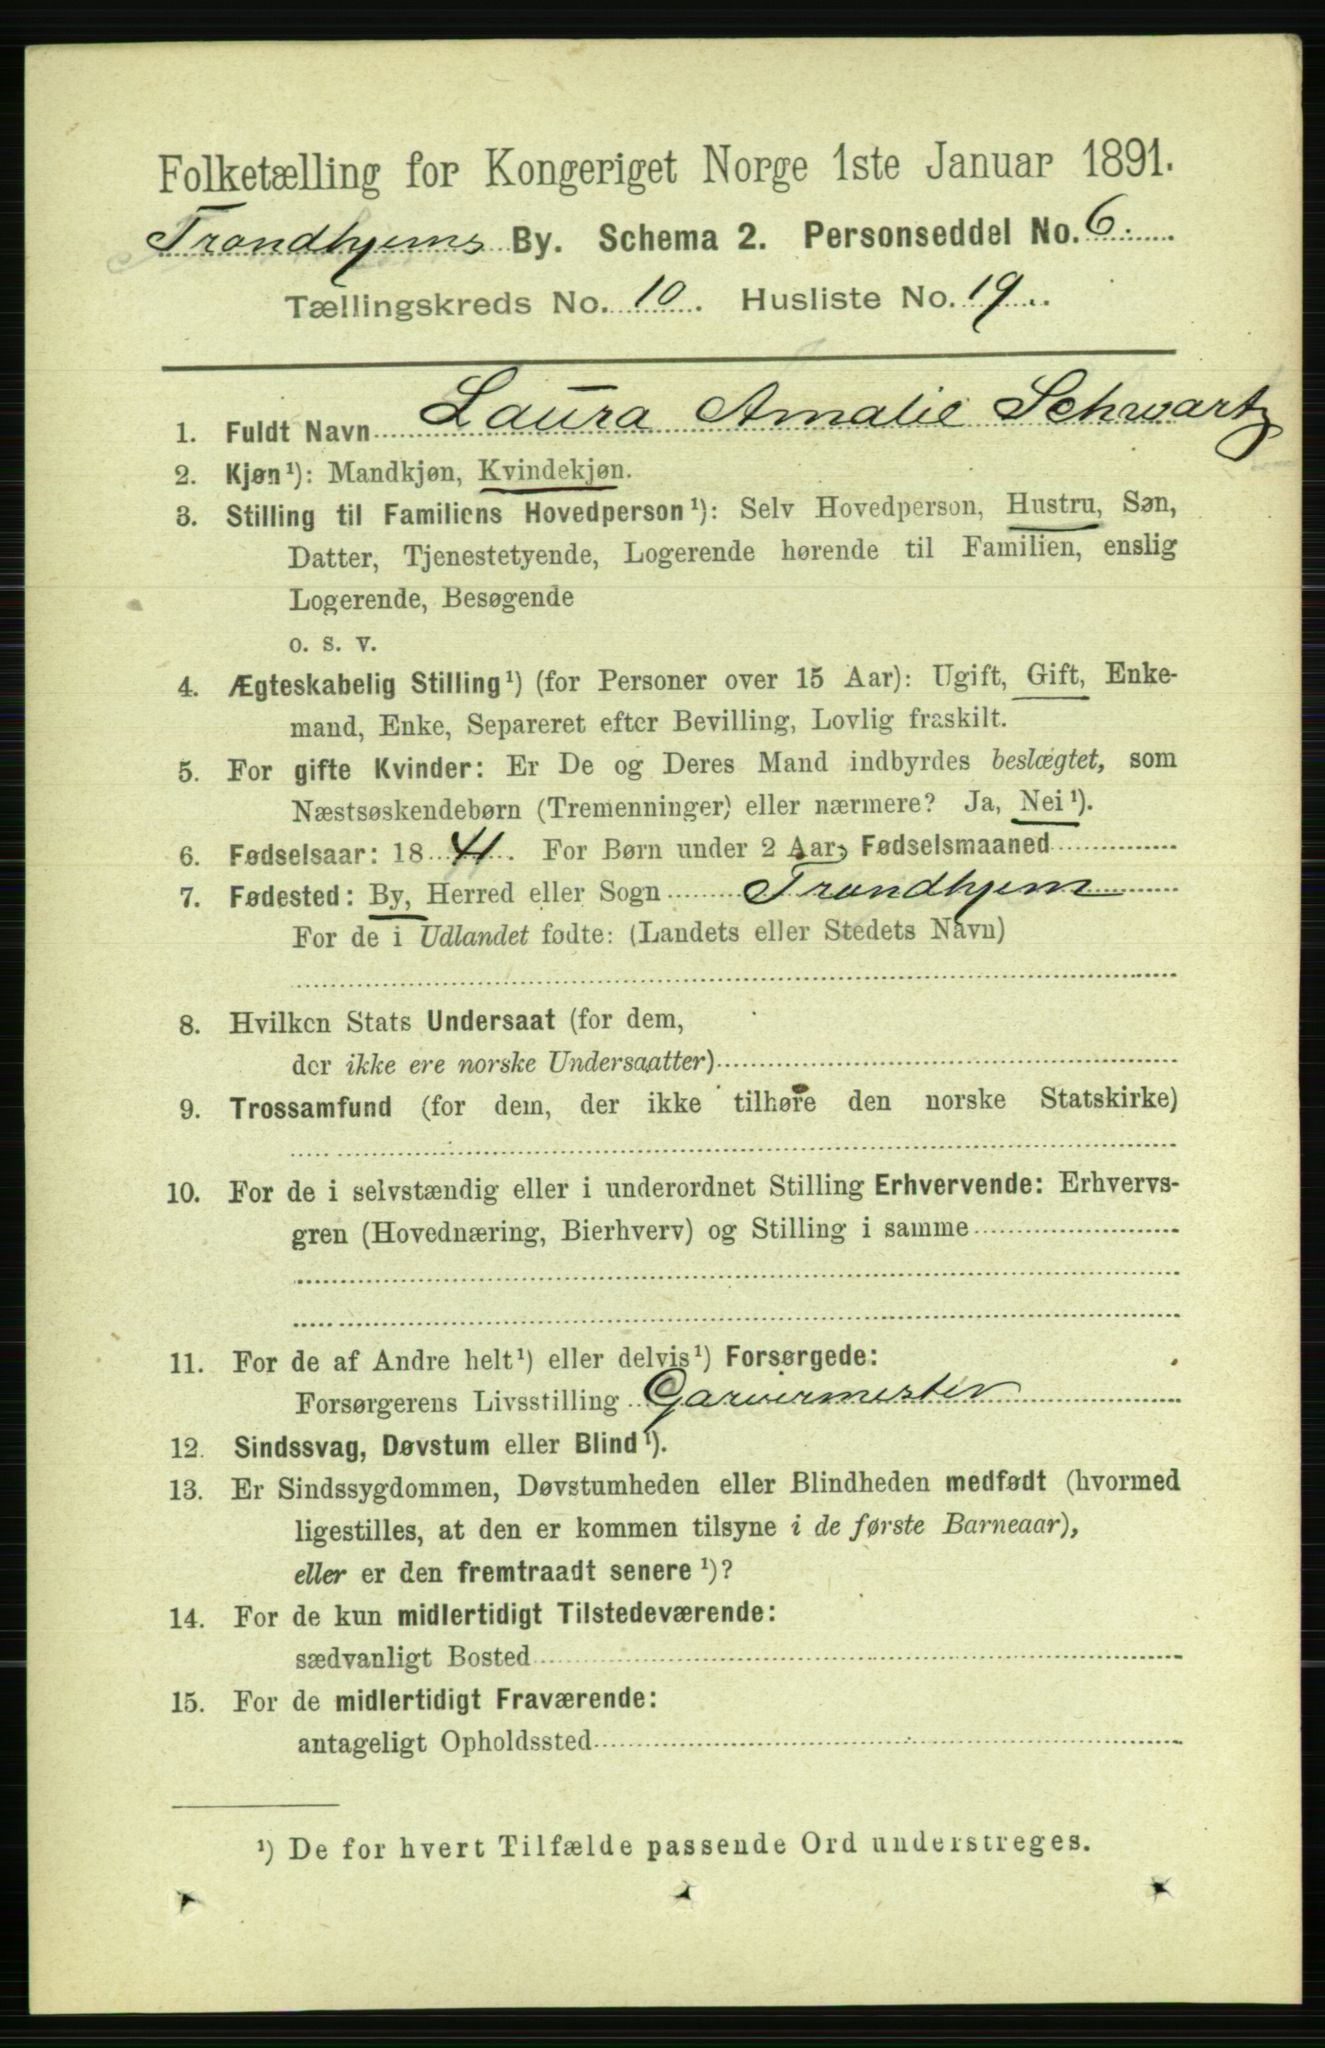 Folketælling for Kongeriget Norge 1ste Januar 1891.
Trondhjems By. Schema 2. Personseddel No. 6.
Tællingskreds No. 10. Husliste No. 19.
1. Fuldt Navn Laura Amalie Schwartz
2. Kjøn¹): Mandkjøn, Kvindekjøn.
3. Stilling til Familiens Hovedperson¹): Selv Hovedperson, Hustru, Søn,
Datter, Tjenestetyende, Logerende hørende til Familien, enslig
Logerende, Besøgende
o. s. v.
4. Ægteskabelig Stilling¹) (for Personer over 15 Aar): Ugift, Gift, Enke-
mand, Enke, Separeret efter Bevilling, Lovlig fraskilt.
5. For gifte Kvinder: Er De og Deres Mand indbyrdes beslægtet, som
Næstsøskendebørn (Tremenninger) eller nærmere? Ja, Nei¹).
6. Fødselsaar: 1841. For Børn under 2 Aar, Fødselsmaaned
7. Fødested: By, Herred eller Sogn Trondhjem
For de i Udlandet fødte: (Landets eller Stedets Navn)
8. Hvilken Stats Undersaat (for dem,
der ikke ere norske Undersaatter)
9. Trossamfund (for dem, der ikke tilhøre den norske Statskirke)
10. For de i selvstændig eller i underordnet Stilling Erhvervende: Erhvervs-
gren (Hovednæring, Bierhverv) og Stilling i samme
11. For de af Andre helt¹) eller delvis¹) Forsørgede:
Forsørgerens Livsstilling Garvermester
12. Sindssvag, Døvstum eller Blind¹).
13. Er Sindssygdommen, Døvstumheden eller Blindheden medfødt (hvormed
ligestilles, at den er kommen tilsyne i de første Barneaar),
eller er den fremtraadt senere¹)?
14. For de kun midlertidigt Tilstedeværende:
sædvanligt Bosted
15. For de midlertidigt Fraværende:
antageligt Opholdssted
¹) De for hvert Tilfælde passende Ord understreges.